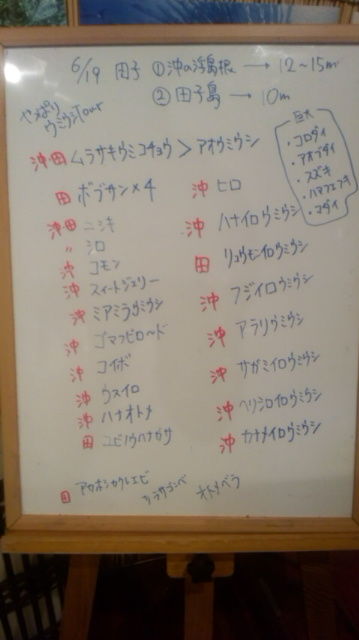 6/19 田子 ①沖の浮島根 → 12~15m
② 田子島 → 10m
やっぱり
ウミウシTour
巨大
・コロダイ
・アオブダイ
・スズキ
・ハマフエフキ
・マダイ
沖田 ムラサキウミコチョウ > アオウミウシ
田 ボブサン×4
沖田 ニシキ
〃 シロ
沖 コモン
沖 スイートジェリー
沖 ミアミラウミウシ
沖 ゴマフビロード
沖 コイボ
沖 ウスイロ
沖 ハナオトメ
田 ユビノウハナガサ
沖 ヒロ
沖 ハナイロウミウシ
田 リュウモンイロウミウシ
沖 フジイロウミウシ
沖 アラリウミウシ
沖 サガミイロウミウシ
沖 ヘリシロイロウミウシ
沖 カナメイロウミウシ
田 アカホシカクレエビ
オトメベラ